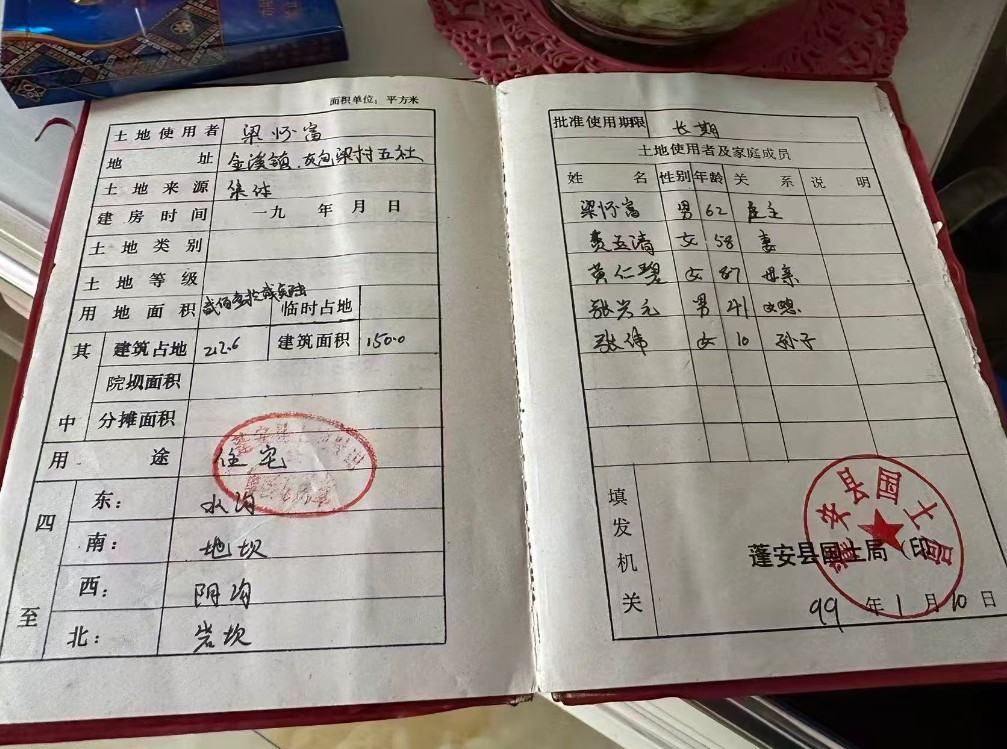 面积单位：平方米
土地使用者 梁怀富
地址 金溪镇 梁村五社
土地来源 集体
建房时间 一九 年 月 日
土地类别
土地等级
用地面积 临时占地
其中 建筑占地 212.6 建筑面积 150.0
院坝面积
分摊面积
用途 住宅
四至 东： 水沟
南： 地坎
西： 阴沟
北： 岩坎
批准使用期限 长期
土地使用者及家庭成员
姓名 性别 年龄 关系 说明
梁怀富 男 62 户主
玉清 女 58 妻
黄仁碧 女 87 母亲
张兴元 男 41
张伟 女 10 孙子
填发机关
蓬安县国土局（印）
蓬安县国土局
99年1月10日